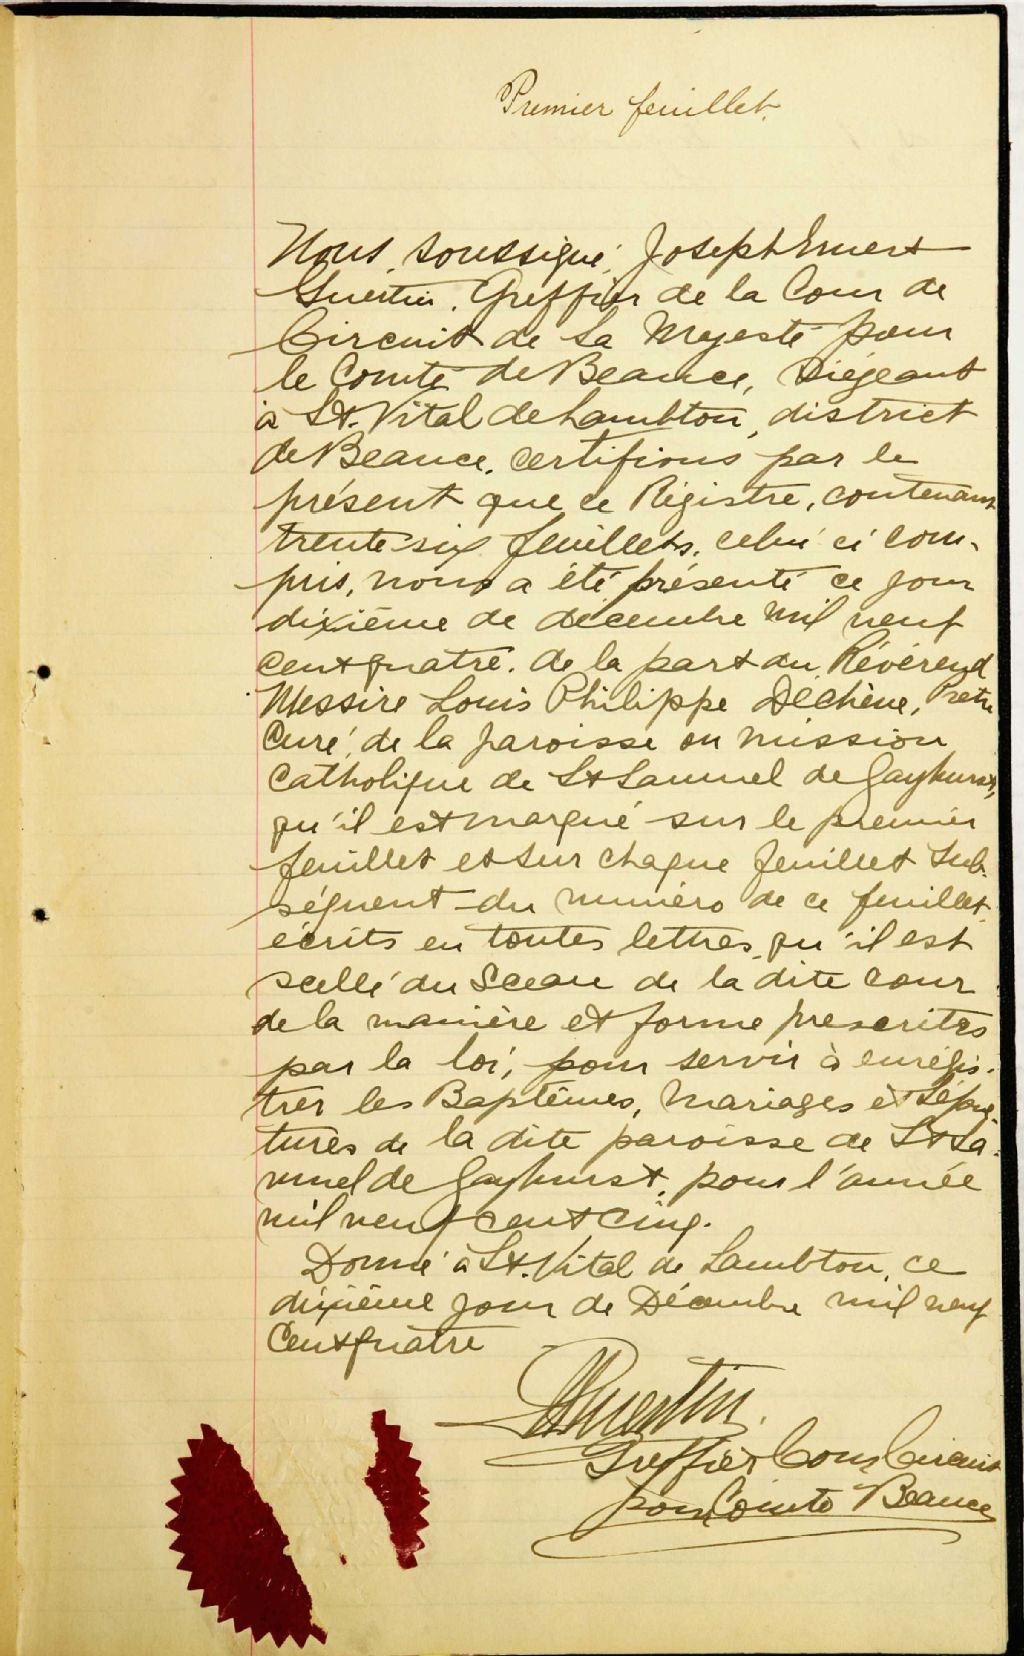 Premier feuillet.
Nous, soussigné, Joseph
Guertin, Greffier de la Cour de
Circuit de Sa Majesté pour
le Comté de Beauce, Siégeant
à St. Vital de Lambton, district
de Beauce, certifions par le
présent que ce Régistre, contenant
trente-six feuillets, celui ci com-
pris, nous a été présenté ce jour
dixième de décembre mil neuf
cent quatre, de la part du Révérend
Messire Louis Philippe Dechêne, Prêtre
Curé, de la paroisse ou mission
Catholique de St Samuel de Gayhurst,
qu'il est marqué sur le premier
feuillet et sur chaque feuillet sub-
séquent du numéro de ce feuillet,
écrits en toutes lettres, qu'il est
scellé du Sceau de la dite cour
de la manière et forme prescrites
par la loi, pour servir à enrégis-
trer les Baptêmes, Mariages et Sépul-
tures de la dite paroisse de St Sa-
muel de Gayhurst, pour l'année
mil neuf cent cinq.
Donné à St. Vital de Lambton, ce
dixième jour de Décembre mil neuf
Cent quatre
Guertin.
Greffier Cour Circuit
pour Comté Beauce